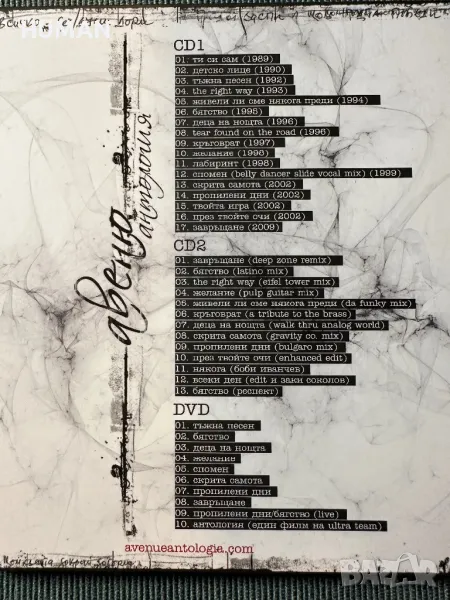 HUMAN
CD1
01. ти си сам (1989)
02. детско лице (1990)
03. тъжна песен (1992)
04. the right way (1993)
05. живели ли сме някога преди (1994)
06. бягство (1995)
07. деца на нощта (1996)
08. tear found on the road (1996)
09. кръговрат (1997)
10. желание (1998)
11. лабиринт (1998)
12. спомен (belly dancer slide vocal mix) (1999)
13. скрита самота (2002)
14. пропилени дни (2002)
15. твойта игра (2002)
16. през твойте очи (2002)
17. завръщане (2009)
авеню
антология
CD2
01. завръщане (deep zone remix)
02. бягство (latino mix)
03. the right way (eifel tower mix)
04. желание (pulp guitar mix)
05. живели ли сме някога преди (da funky mix)
06. кръговрат (a tribute to the brass)
07. деца на нощта (walk thru analog world)
08. скрита самота (gravity co. mix)
09. пропилени дни (bulgaro mix)
10. през твойте очи (enhanced edit)
11. някога (боби иванчев)
12. всеки ден (edit и заки соколов)
13. бягство (респект)
DVD
01. тъжна песен
02. бягство
03. деца на нощта
04. желание
05. спомен
06. скрита самота
07. пропилени дни
08. завръщане
09. пропилени дни/бягство (live)
10. антология (един филм на ultra team)
avenueantologia.com
bazar